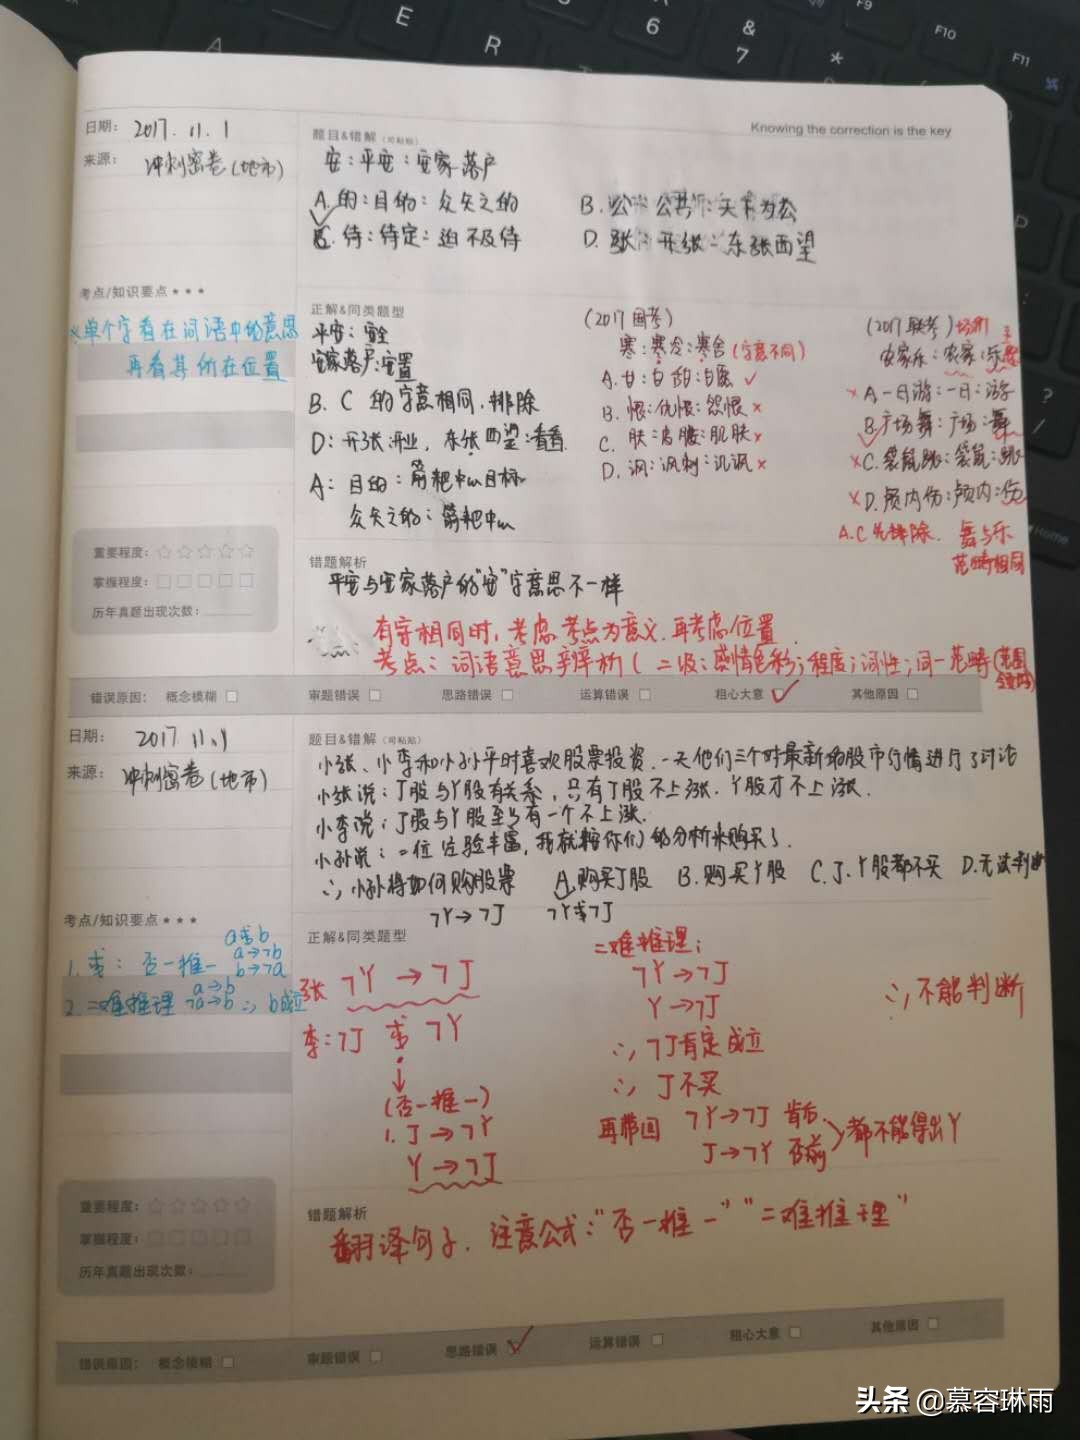 Knowing the correction is the key
日期： 2017.11.1
来源： 冲刺密卷(地市)
题目&错解（可粘贴）
安：平安：安家落户
A.的：目的：众矢之的
B.公：公共：天下为公
C.待：待定：迫不及待
D.张：开张：东张西望
考点/知识要点★★★
※单个字看在词语中的意思
再看其所在位置
正解&同类题型
平安：安全
安家落户：安置
B. C 的字意相同.排除
D：开张:开业，东张西望:看看
A：目的：箭靶中心目标
众矢之的：箭靶中心
(2017国考)
寒：寒冷：寒舍(字意不同)
A.甘：甘甜：甘愿 ✓
B.恨：仇恨：怨恨 ×
C.肤：皮肤：肌肤 ×
D.讽：讽刺：讥讽 ×
(2017联考)
农家乐：农家：乐
×A.一日游：一日：游
B.广场舞：广场：舞
×C.袋鼠跳：袋鼠：跳
×D.颅内伤：颅内：伤
A.C先排除. 舞与乐
范畴相同
重要程度：☆☆☆☆☆
掌握程度：□□□□□
历年真题出现次数：
错题解析
平安与安家落户的"安"字意思不一样
有字相同时，考虑考点为意义.再考虑位置
考点：词语意思辨析(二级：感情色彩；程度；词性；同一范畴(范围
错误原因： 概念模糊□ 审题错误□ 思路错误□ 运算错误□ 粗心大意✓ 其他原因□
日期： 2017.11.1
来源： 冲刺密卷(地市)
题目&错解（可粘贴）
小张、小李和小孙平时喜欢股票投资.一天他们三个对最新的股市行情进行了讨论
小张说：J股与Y股有关系，只有J股不上涨.Y股才不上涨.
小李说：J股与Y股至少有一个不上涨.
小孙说：二位经验丰富，我就按你们的分析来购买了.
∴小孙将如何购股票 A.购买J股 B.购买Y股 C.J.Y股都不买 D.无法判断
¬Y→¬J ¬Y或¬J
考点/知识要点★★★
a或b
1.或：否一推一 a→¬b
b→¬a
a→b
2.二难推理 ¬a→b ∴b成立
正解&同类题型
张 ¬Y → ¬J
李：¬J 或 ¬Y
(否一推一)
1. J → ¬Y
Y → ¬J
二难推理：
¬Y → ¬J
Y → ¬J
∴ ¬J肯定成立
∴ J不买
再带回 ¬Y→¬J 肯后
J→¬Y 否前
都不能得出Y
∴不能判断
重要程度：☆☆☆☆☆
掌握程度：□□□□□
历年真题出现次数：
错题解析
翻译句子.注意公式："否一推一""二难推理"
错误原因： 概念模糊□ 审题错误□ 思路错误✓ 运算错误□ 粗心大意□ 其他原因□
头条 @慕容琳雨